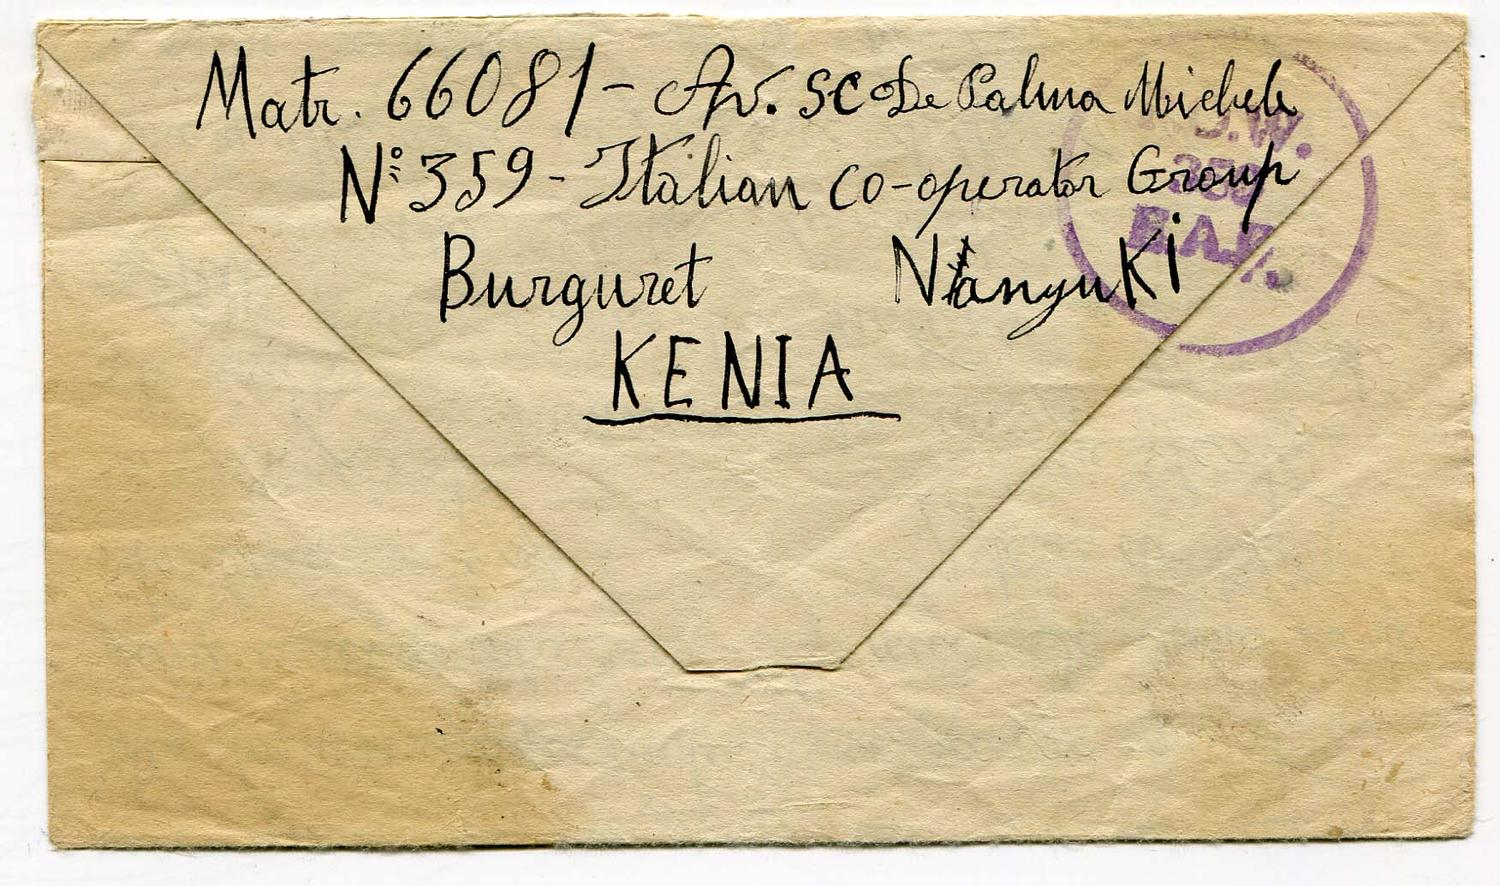 Matr. 66081 - Av. SC De Palma Michele
N° 359 - Italian co-operator Group
Burguret Nanyuki
KENIA
E.A.